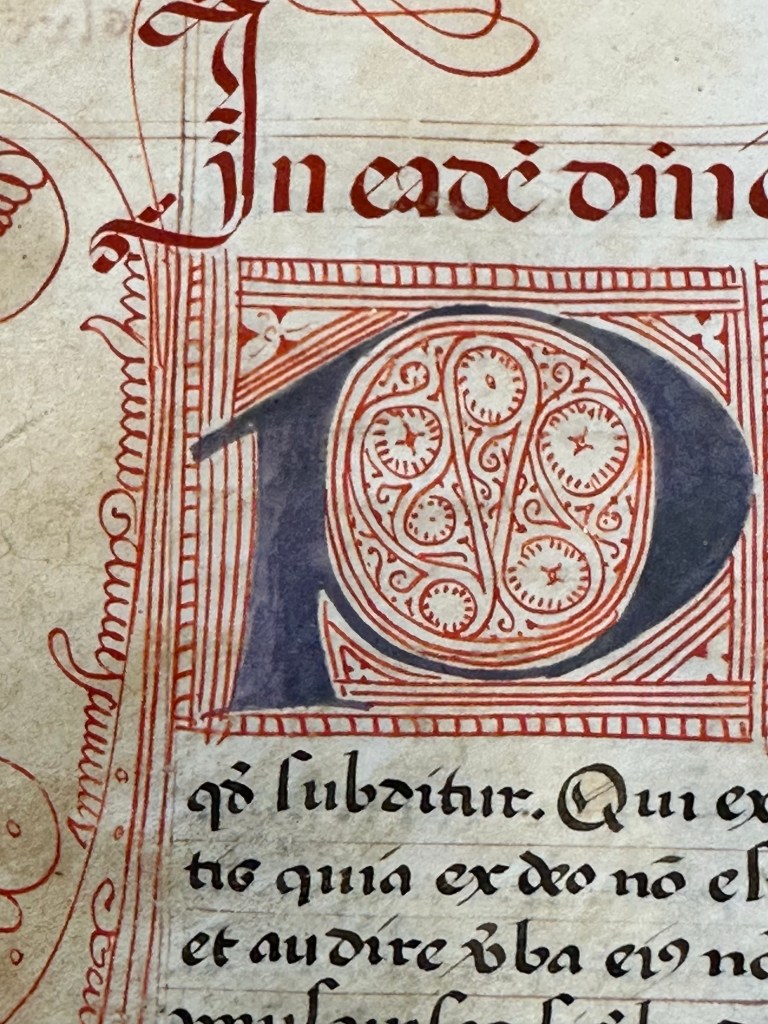 In eadē dñi
P
qď subditur. Qui ex
tis quia ex deo nō es
et audire v̄ba eiꝰ nō